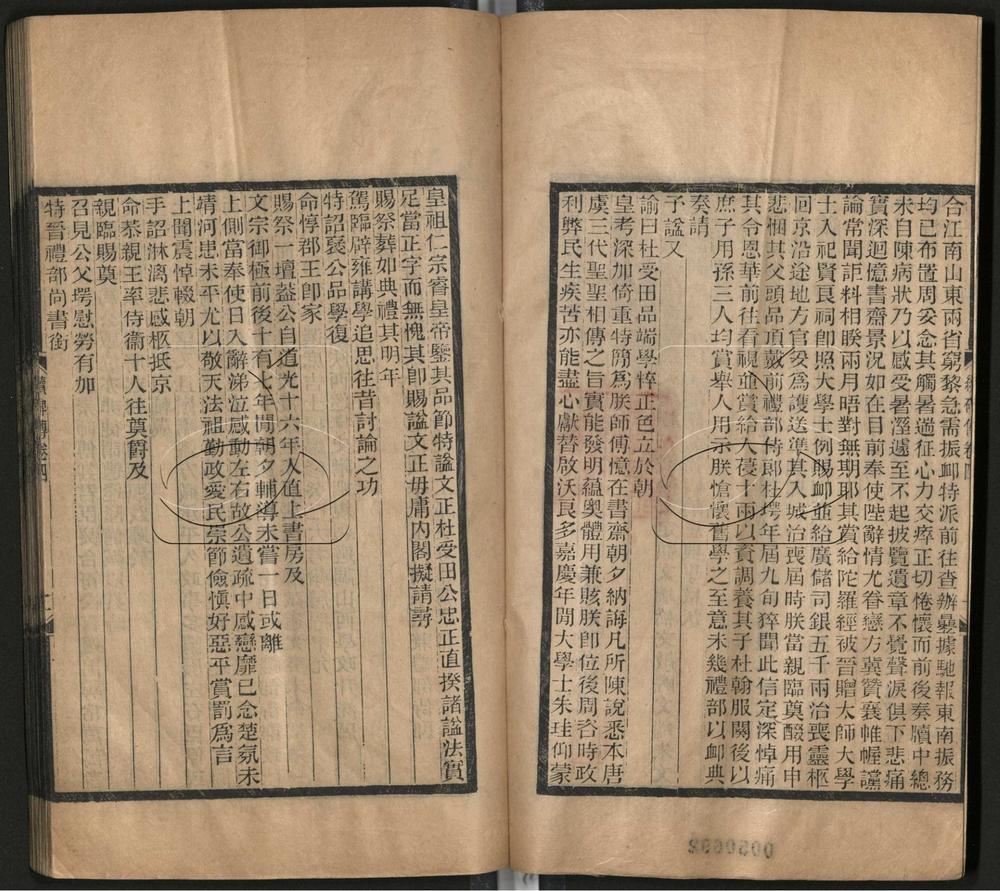 合江南山東兩省窮黎急需振卹特派前往查辦曩據馳報東南振務
均已布置周妥念其觸暑遄征心力交瘁正切惓懷而前後奏牘中總
未自陳病狀乃以感受暑溼遽至不起披覽遺章不覺聲淚俱下悲痛
實深迴憶書齋景況如在目前奉使陛辭情尤眷戀方冀贊襄帷幄讜
論常聞詎料相睽兩月晤對無期耶其賞給陀羅經被晉贈太師大學
士入祀賢良祠卽照大學士例賜卹並給廣儲司銀五千兩治喪靈柩
回京沿途地方官妥爲護送準其入城治喪屆時朕當親臨奠醊用申
悲悃其父頭品頂戴前禮部侍郎杜堮年屆九旬猝聞此信定深悼痛
其令恩華前往看視並賞給人葠十兩以資調養其子杜翰服闋後以
庶子用孫三人均賞舉人用示朕愴懷舊學之至意未幾禮部以卹典
奏請
予諡又
諭曰杜受田品端學粹正色立於朝
皇考深加倚重特簡爲朕師傅憶在書齋朝夕納誨凡所陳說悉本唐
虞三代聖聖相傳之旨實能發明蘊奧體用兼賅朕卽位後周咨時政
利弊民生疾苦亦能盡心獻替啟沃良多嘉慶年閒大學士朱珪仰蒙
皇祖仁宗睿皇帝鑒其品節特諡文正杜受田公忠正直揆諸諡法實
足當正字而無愧其卽賜諡文正毋庸內閣擬請尋
賜祭葬如典禮其明年
駕臨辟雍講學追思往昔討論之功
特詔襃公品學復
命惇郡王卽家
賜祭一壇蓋公自道光十六年入值上書房及
文宗御極前後十有七年閒朝夕輔導未嘗一日或離
上側當奉使日入辭涕泣感動左右故公遺疏中感戀靡已念楚氛未
靖河患未平尤以敬天法祖勤政愛民崇節儉愼好惡平賞罰爲言
上聞震悼輟朝
手詔淋漓悲感柩抵京
命恭親王率侍衞十人往奠爵及
親臨賜奠
召見公父堮慰勞有加
特晉禮部尚書銜
0050692